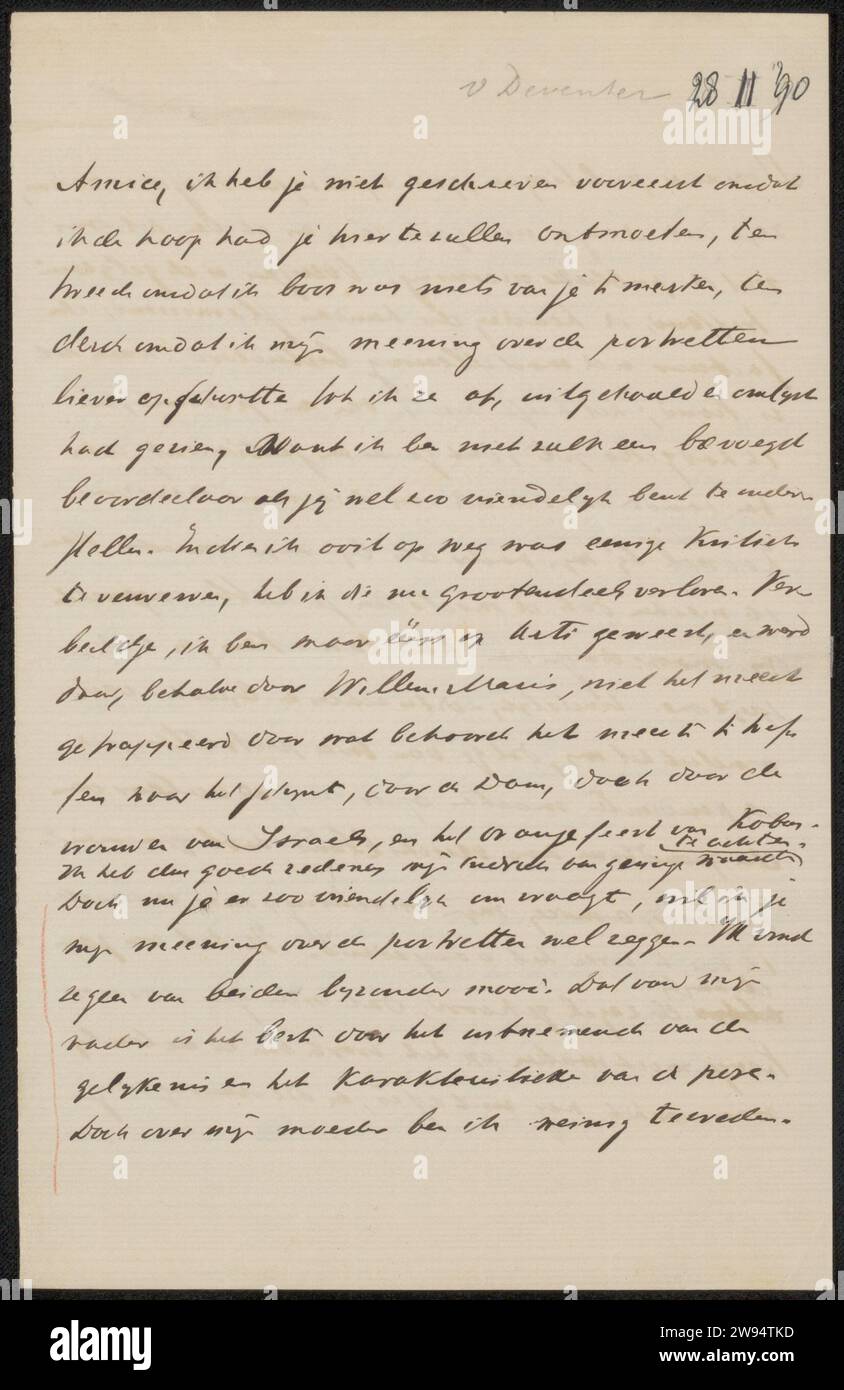 v Deventer 28 11 '90
Amice, ik heb je niet geschreven vooreerst omdat
ik de hoop had je hier te zullen ontmoeten, ten
tweede omdat ik boos was niets van je te merken, ten
derde omdat ik mijn meening over de portretten
liever opschortte tot ik ze af, uitgehaald en omlijst
had gezien. Want ik ben niet zulk een bevoegd
beoordeelaar als jij wel zoo vriendelijk bent te onder-
stellen. Indien ik ooit op weg was eenige Kritiek
te verwerven, heb ik die nu grootendeels verloren. Ver-
beeldje, ik ben maar ééns op Arti geweest, en werd
daar, behalve door Willem Maris, niet het meest
gefrappeerd door wat behoorde het meest te tref-
fen naar het schijnt, door de Dam, doch door de
vrouwen van Israels, en het oranjefeest van Kobus.
Ik heb dus goede redenen mijn indruk van geringe waarde
te achten.
Doch nu je er zoo vriendelijk om vraagt, wil ik je
mijn meening over de portretten wel zeggen. Ik vind
ze geen van beiden byzonder mooi. Dat van mijn
vader is het best door het uitnemende van de
gelijkenis en het Karakteristieke van de pose.
Doch over mijn moeder ben ik weinig tevreden.
alamy
a
Image ID: 2W94TKD
www.alamy.com